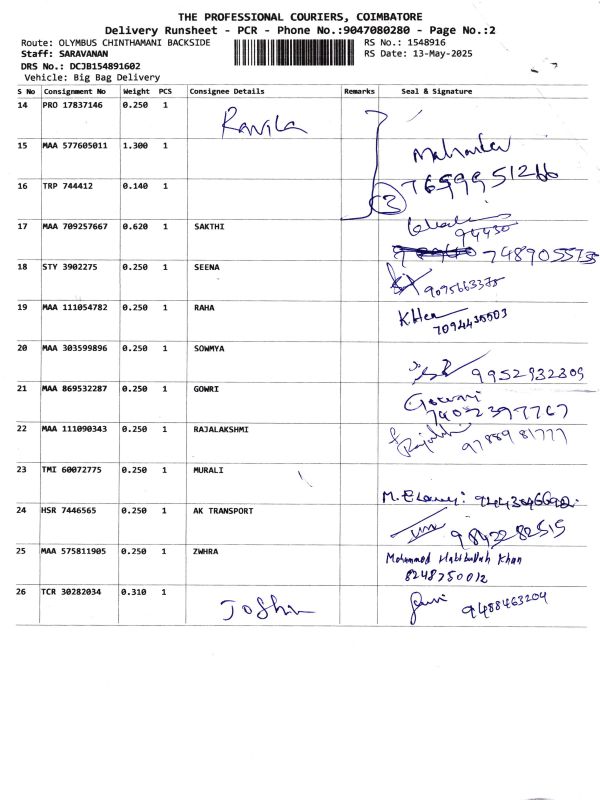 THE PROFESSIONAL COURIERS, COIMBATORE
Delivery Runsheet - PCR - Phone No.:9047080280 - Page No.:2
Route: OLYMBUS CHINTHAMANI BACKSIDE RS No.: 1548916
Staff: SARAVANAN RS Date: 13-May-2025
DRS No.: DCJB154891602
Vehicle: Big Bag Delivery
S No Consignment No Weight PCS Consignee Details Remarks Seal & Signature
14 PRO 17837146 0.250 1
Ravila
15 MAA 577605011 1.300 1
Mahadev
16 TRP 744412 0.140 1
3 7659951266
17 MAA 709257667 0.620 1 SAKTHI
94430
7489055735
18 STY 3902275 0.250 1 SEENA
9095663375
19 MAA 111054782 0.250 1 RAHA
7094435503
20 MAA 303599896 0.250 1 SOWMYA
9952932309
21 MAA 869532287 0.250 1 GOWRI
Gowri
7402397767
22 MAA 111090343 0.250 1 RAJALAKSHMI
Rajalakshmi 9788981777
23 TMI 60072775 0.250 1 MURALI
24 HSR 7446565 0.250 1 AK TRANSPORT
9842282515
25 MAA 575811905 0.250 1 ZWHRA
Mohammed Habibullah Khan
8248750012
26 TCR 30282034 0.310 1
Joshu
9488463204